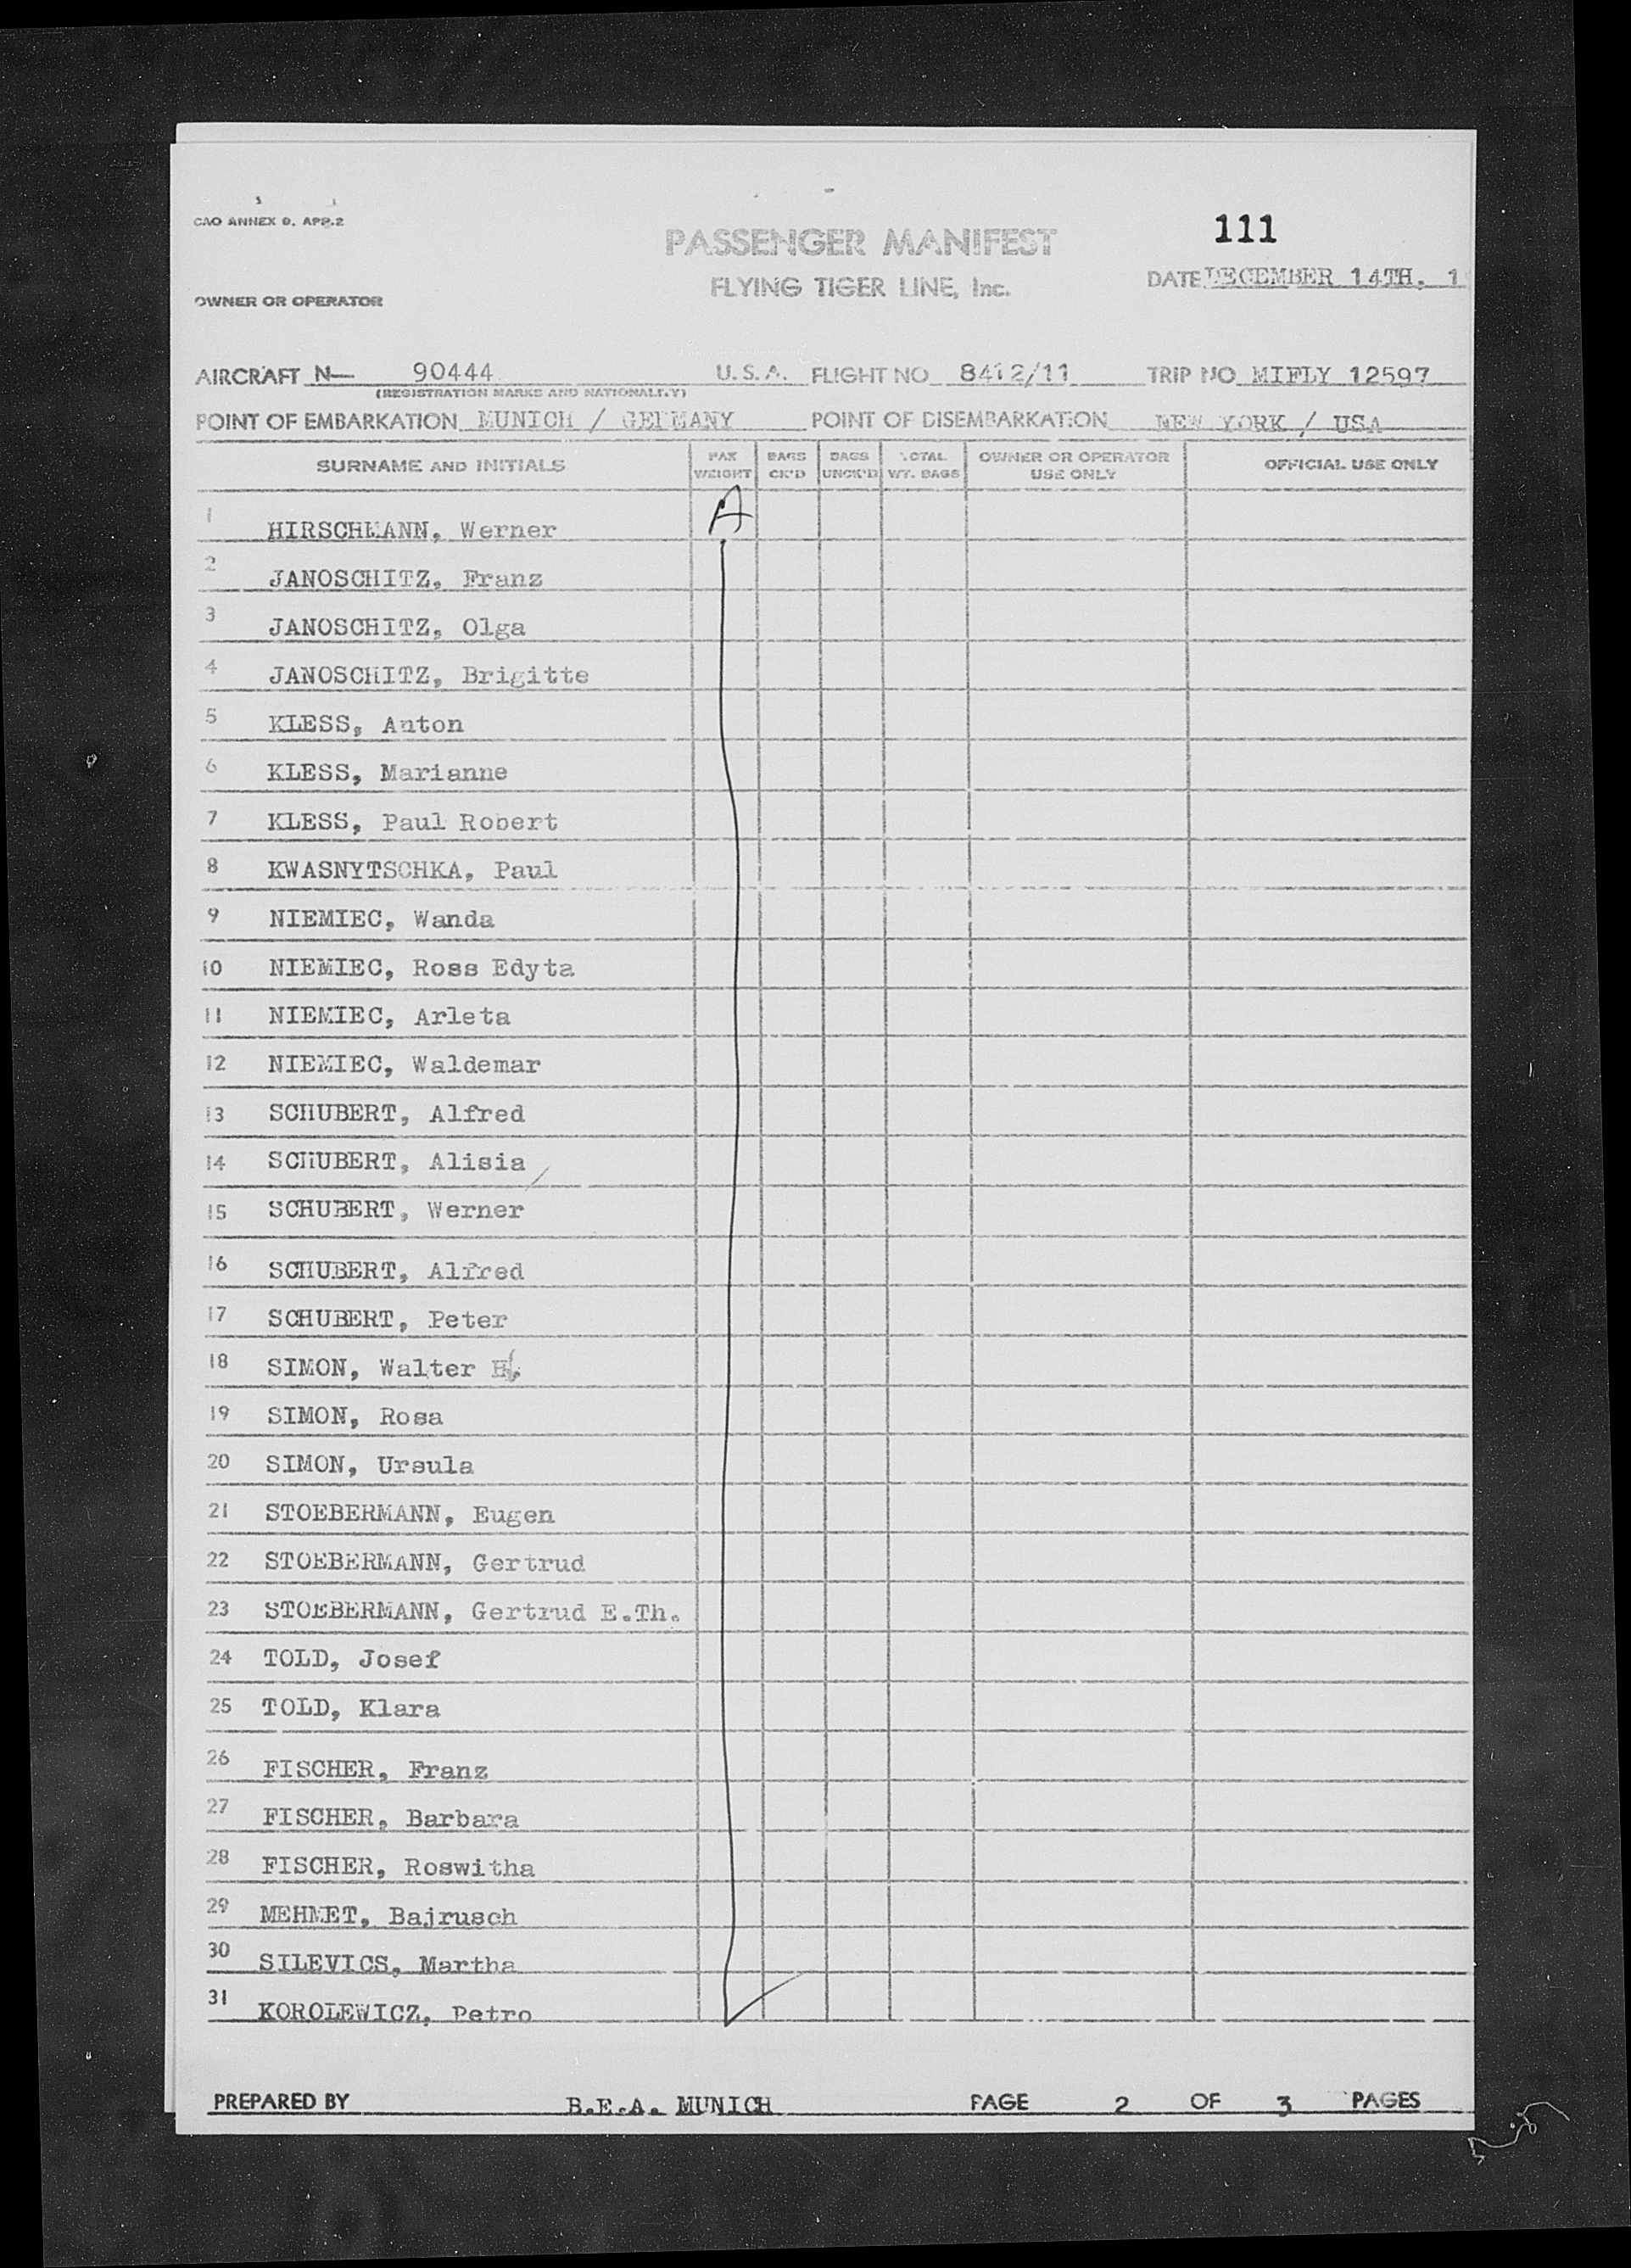 CAO ANNEX 9, APP.2
111
PASSENGER MANIFEST
FLYING TIGER LINE, Inc.
DATE DECEMBER 14TH, 1
OWNER OR OPERATOR
AIRCRAFT N— 90444 U.S.A. FLIGHT NO 8412/11 TRIP NO MIFLY 12597
(REGISTRATION MARKS AND NATIONALITY)
POINT OF EMBARKATION MUNICH / GERMANY POINT OF DISEMBARKATION NEW YORK / USA
SURNAME AND INITIALS PAX WEIGHT BAGS CK'D BAGS UNCK'D TOTAL WT. BAGS OWNER OR OPERATOR USE ONLY OFFICIAL USE ONLY
1 HIRSCHMANN, Werner A
2 JANOSCHITZ, Franz
3 JANOSCHITZ, Olga
4 JANOSCHITZ, Brigitte
5 KLESS, Anton
6 KLESS, Marianne
7 KLESS, Paul Robert
8 KWASNYTSCHKA, Paul
9 NIEMIEC, Wanda
10 NIEMIEC, Ross Edyta
11 NIEMIEC, Arleta
12 NIEMIEC, Waldemar
13 SCHUBERT, Alfred
14 SCHUBERT, Alisia
15 SCHUBERT, Werner
16 SCHUBERT, Alfred
17 SCHUBERT, Peter
18 SIMON, Walter H.
19 SIMON, Rosa
20 SIMON, Ursula
21 STOEBERMANN, Eugen
22 STOEBERMANN, Gertrud
23 STOEBERMANN, Gertrud E.Th.
24 TOLD, Josef
25 TOLD, Klara
26 FISCHER, Franz
27 FISCHER, Barbara
28 FISCHER, Roswitha
29 MEHMET, Bajrusch
30 SILEVICS, Martha
31 KOROLEWICZ, Petro
PREPARED BY B.E.A. MUNICH PAGE 2 OF 3 PAGES